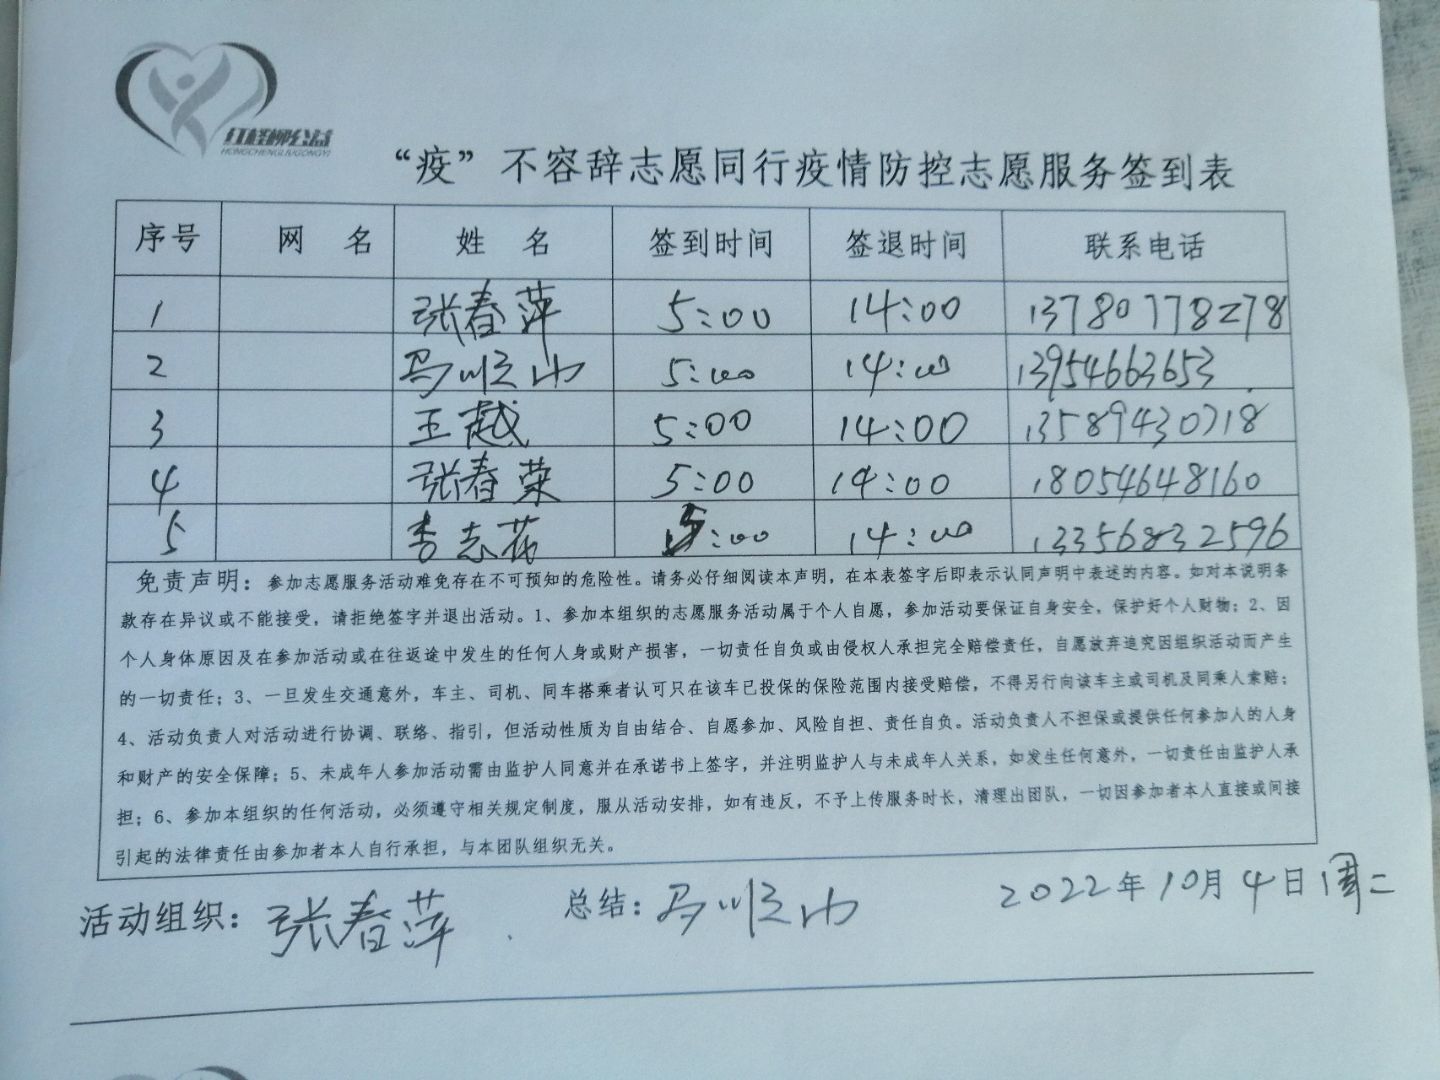 红柽柳公益
HONGCHENGLIUGONGYI
“疫”不容辞志愿同行疫情防控志愿服务签到表
序号 网 名 姓 名 签到时间 签退时间 联系电话
1 张春萍 5:00 14:00 13780778278
2 马顺山 5:00 14:00 13954663653
3 王越 5:00 14:00 13589430718
4 张春荣 5:00 14:00 18054648160
5 李志花 5:00 14:00 13356832596
免责声明：参加志愿服务活动难免存在不可预知的危险性。请务必仔细阅读本声明，在本表签字后即表示认同声明中表述的内容。如对本说明条
款存在异议或不能接受，请拒绝签字并退出活动。1、参加本组织的志愿服务活动属于个人自愿，参加活动要保证自身安全，保护好个人财物；2、因
个人身体原因及在参加活动或在往返途中发生的任何人身或财产损害，一切责任自负或由侵权人承担完全赔偿责任，自愿放弃追究因组织活动而产生
的一切责任；3、一旦发生交通意外，车主、司机、同车搭乘者认可只在该车已投保的保险范围内接受赔偿，不得另行向该车主或司机及同乘人索赔；
4、活动负责人对活动进行协调、联络、指引，但活动性质为自由结合、自愿参加、风险自担、责任自负。活动负责人不担保或提供任何参加人的人身
和财产的安全保障；5、未成年人参加活动需由监护人同意并在承诺书上签字，并注明监护人与未成年人关系，如发生任何意外，一切责任由监护人承
担；6、参加本组织的任何活动，必须遵守相关规定制度，服从活动安排，如有违反，不予上传服务时长，清理出团队，一切因参加者本人直接或间接
引起的法律责任由参加者本人自行承担，与本团队组织无关。
活动组织：张春萍 总结：马顺山 2022年10月4日周二